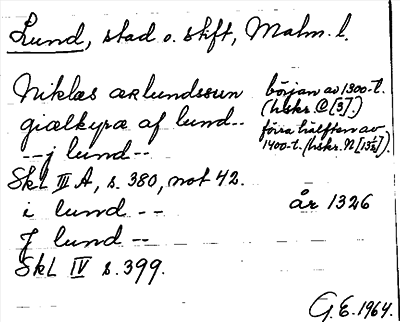 Lund, stad o. stift, Malm. l.
Niklæs ærlundssun början av 1300-t.
(hskr. C [3].)
giælkyræ af lund-- förra hälften av
--j lund-- 1400-t. (hskr.
Skl III A, s. 380, not 42.
i lund -- år 1326
J lund --
Skl IV s. 399.
G.E. 1964.